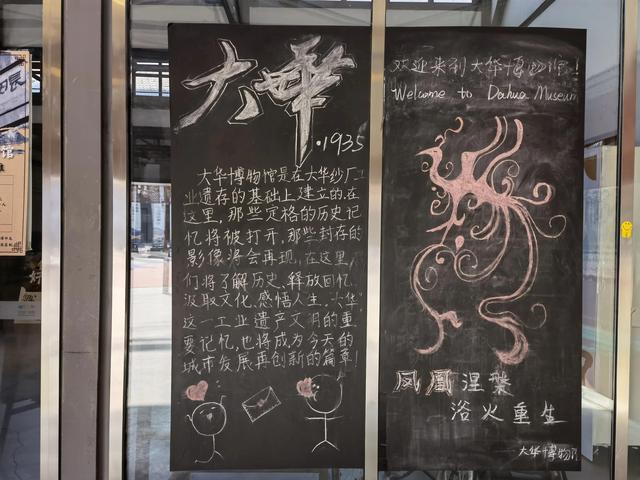 大华
·1935
大华博物馆是在大华纱厂工
业遗存的基础上建立的,在
这里,那些定格的历史记
忆将被打开,那些封存的
影像将会再现,在这里,
们将了解历史,释放回忆
汲取文化,感悟人生,大华
这一工业遗产文明的重
要记忆,也将成为今天的
城市发展再创新的篇章!
欢迎来到大华博物馆!
Welcome to Dahua Museum
凤凰涅槃
浴火重生
大华博物馆